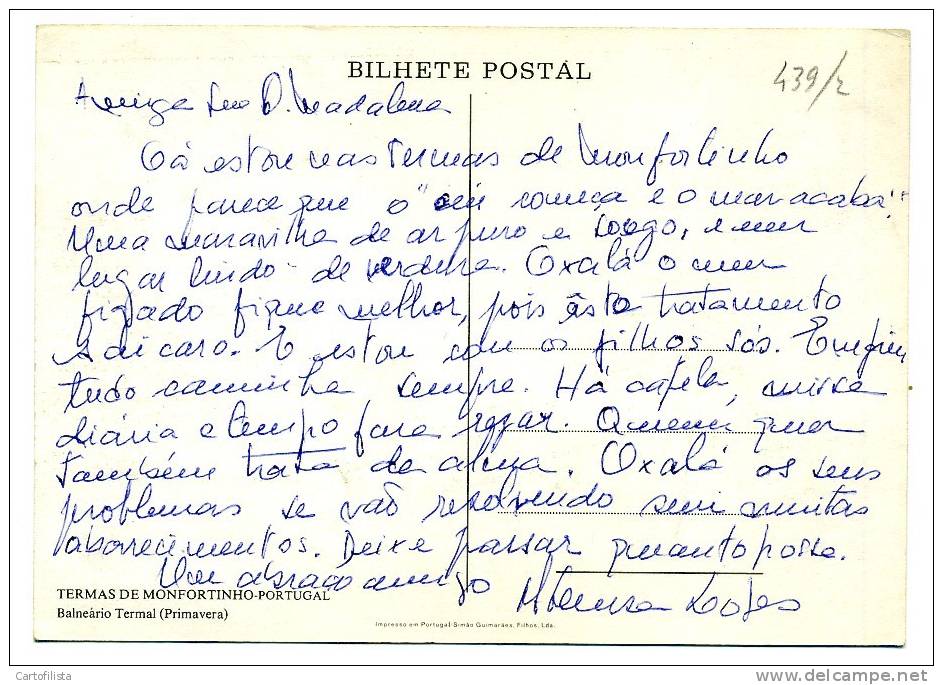 BILHETE POSTAL
439/2
Amiga Sra D. Madalena
Cá estou nas Termas de Monfortinho
onde parece que o "céu começa e o mar acaba".
Uma maravilha de ar puro e sossego, e um
lugar lindo de verdura. Oxalá o meu
figado fique melhor, pois êste tratamento
sai caro. E estou com os filhos sós. Enfim
tudo caminha sempre. Há capela, missa
diária e tempo para rezar. Quem quer
também trata da alma. Oxalá os seus
problemas se vão resolvendo sem muitos
aborecimentos. Deixe passar quanto possa.
Um abraço amigo
Lopes
TERMAS DE MONFORTINHO-PORTUGAL
Balneário Termal (Primavera)
Impresso em Portugal-Simão Guimarães, Filhos, Lda.
Cartofilista
http://www.delcampe.net